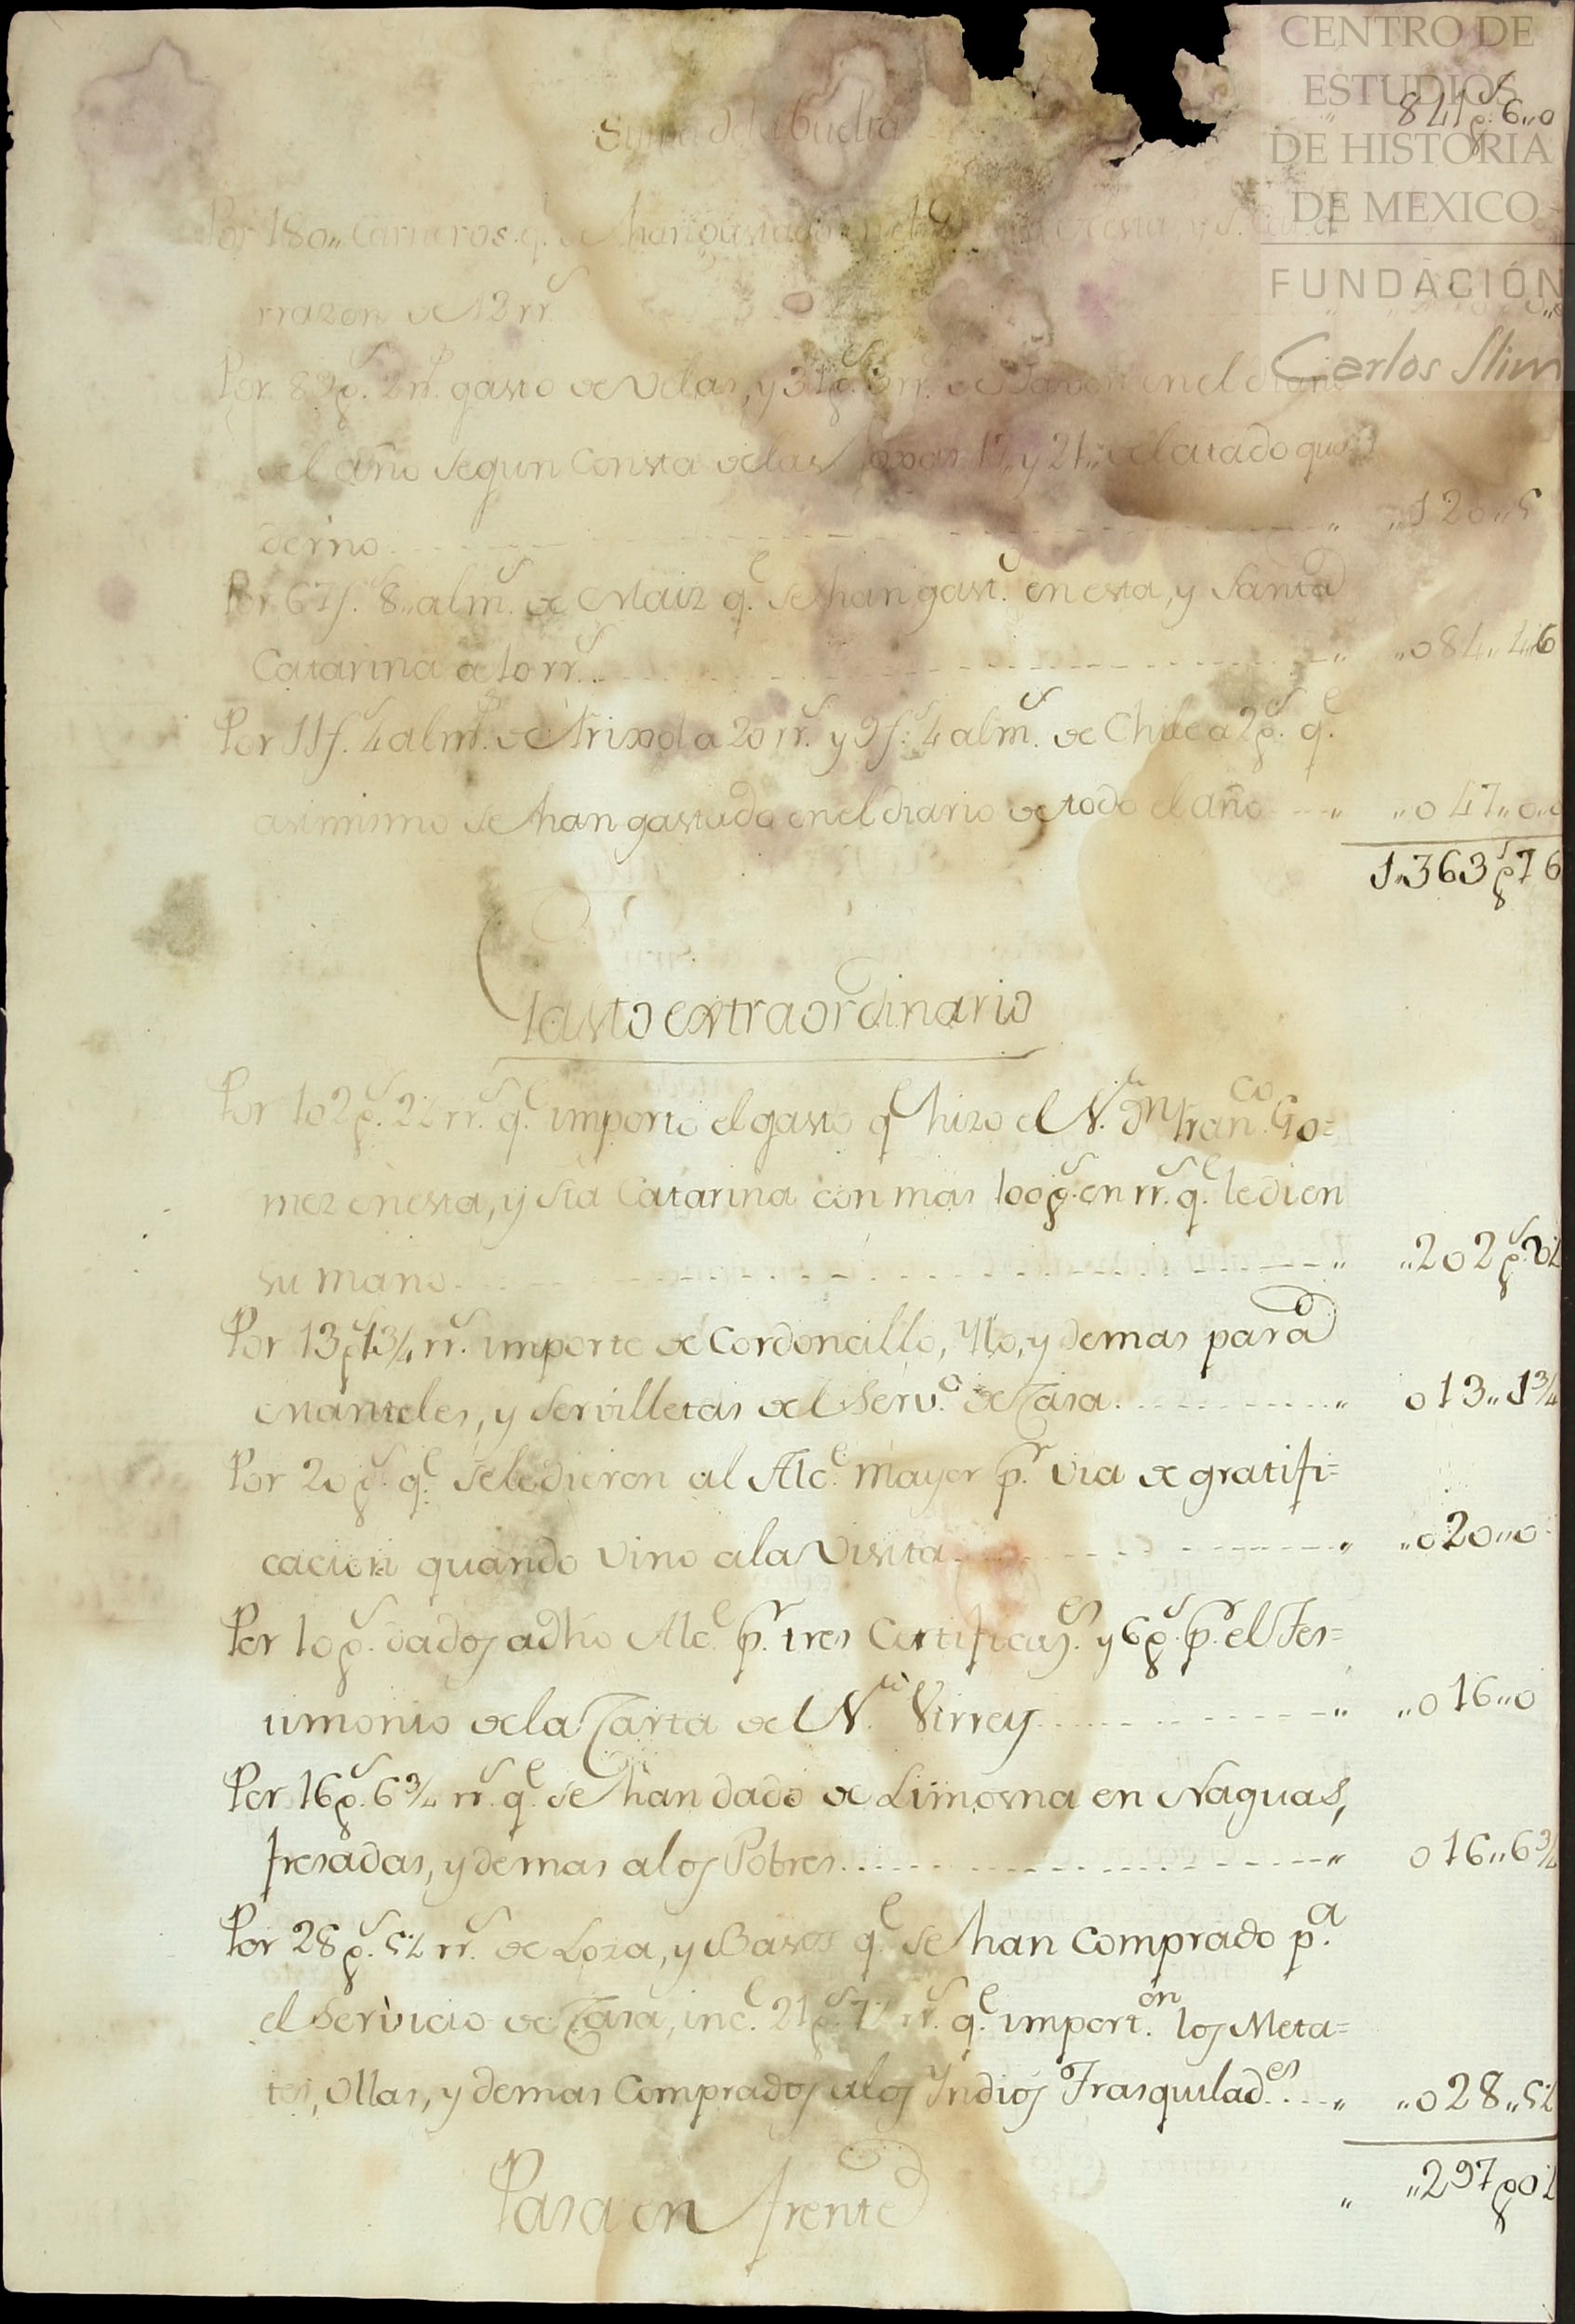 CENTRO DE
ESTUDIOS
DE HISTORIA
DE MEXICO
FUNDACIÓN
Carlos Slim
Suma de la buelta 841 p.s 6,,0
Por 180,, Carneros q.e se han gastado en esta, y S.ta
rrazon de 13 rr.s
Por 89 p.s 2 rr.s gasto de Velas, y 31 p.s 3 rr.s de Javon en el diario
del año segun Consta de las foxas 17,, y 21,, del citado qua-
derno ,,120,,5
Por 67 f.s 8,, alm.s de Maiz q.e se han gast.o en esta, y Santa
Catarina a 10 rr.s ,,084,,4,,6
Por 11 f.s 4 alm.s de Frixol a 20 rr.s y 9 f.s 4 alm.s de Chile a 2 p.s q.e
asimismo se han gastado en el diario de todo el año ,,047,,0,,0
1,,363 p.s 7 6
Gasto extraordinario
Por 102 p.s 2½ rr.s q.e importó el gasto q.e hizo el N. D.n Fran.co Go=
mez en esta, y Sta Catarina con mas 100 p.s en rr.s q.e le di en
su mano ,,202 p.s 2½
Por 13 p.s 1¾ rr.s importe de Cordoncillo, Ylo, y demas para
Manteles, y Servilletas del Serv.o de Casa 013,,1¾
Por 20 p.s q.e se le dieron al Alc.e Mayor p.r via de gratifi=
cacion quando vino a la Visita ,,020,,0
Por 10 p.s dados a dho Alc.e p.r tres Certificaz.es y 6 p.s p.r el Tes=
timonio de la Carta de N. Virrey ,,016,,0
Por 16 p.s 6¾ rr.s q.e se han dado de Limosna en Naguas,
fresadas, y demas a los Pobres 016,,6¾
Por 28 p.s 5½ rr.s de Loza, y Basos q.e se han Comprado p.a
el Servicio de Casa, inc.e 21 p.s 7½ rr.s q.e import.on los Meta=
tes, Ollas, y demas Comprados a los Yndios Trasquilad.es ,,028,,5½
Pasa en frente ,,297 p 0½